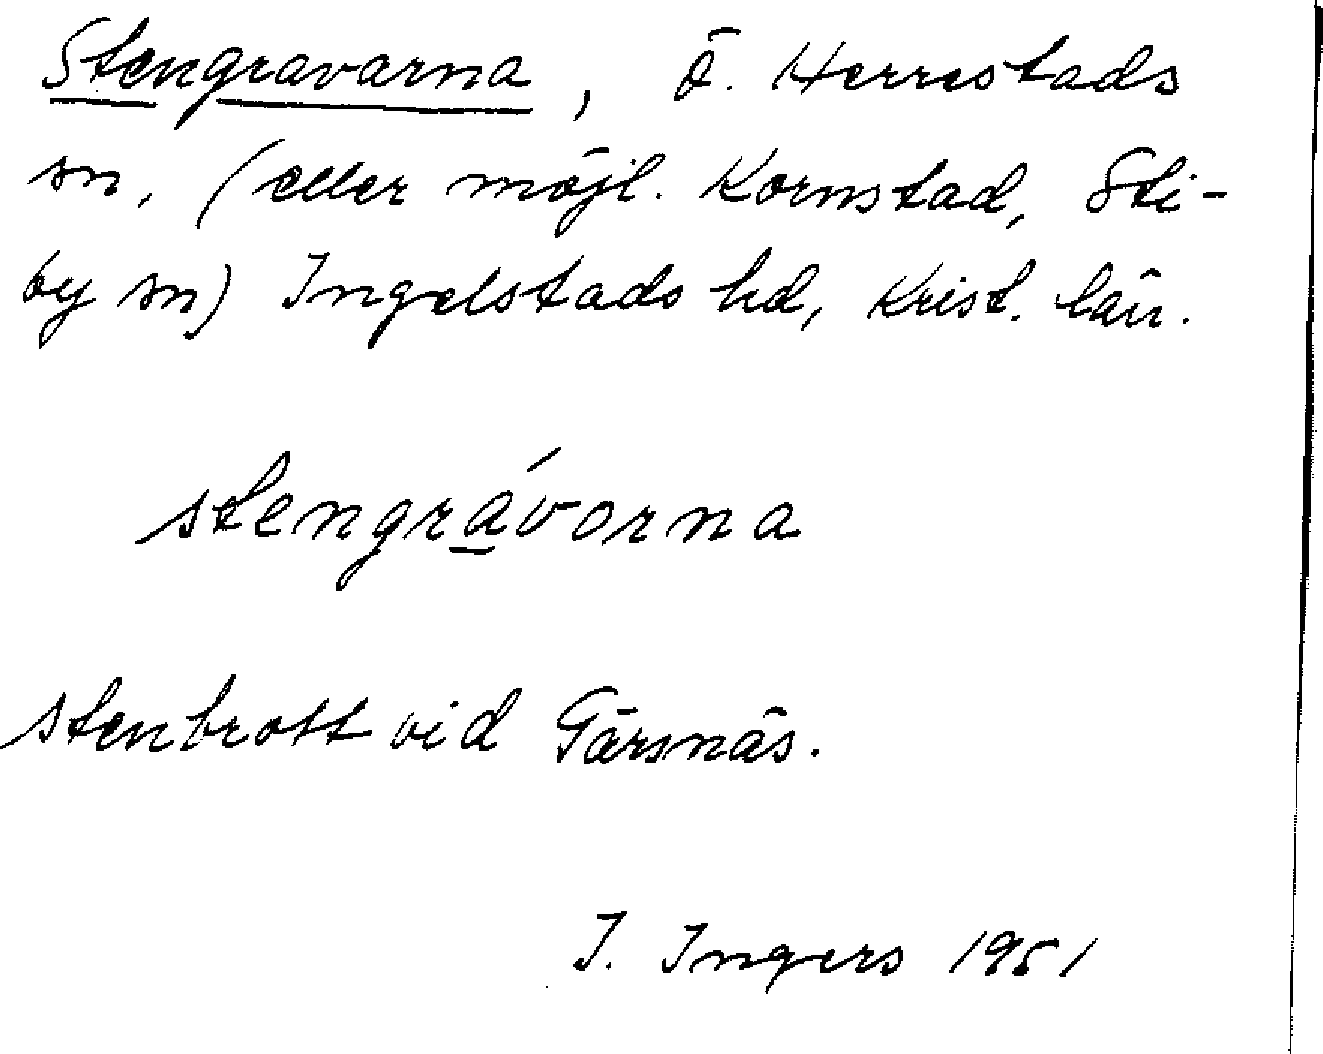 Stengravarna, Ö. Herrestads
sn, (eller möjl. Kornstad, Sti-
by sn) Ingelstads hd, Krist. län.
stengrávorna
stenbrott vid Gärsnäs.
I. Ingers 1951